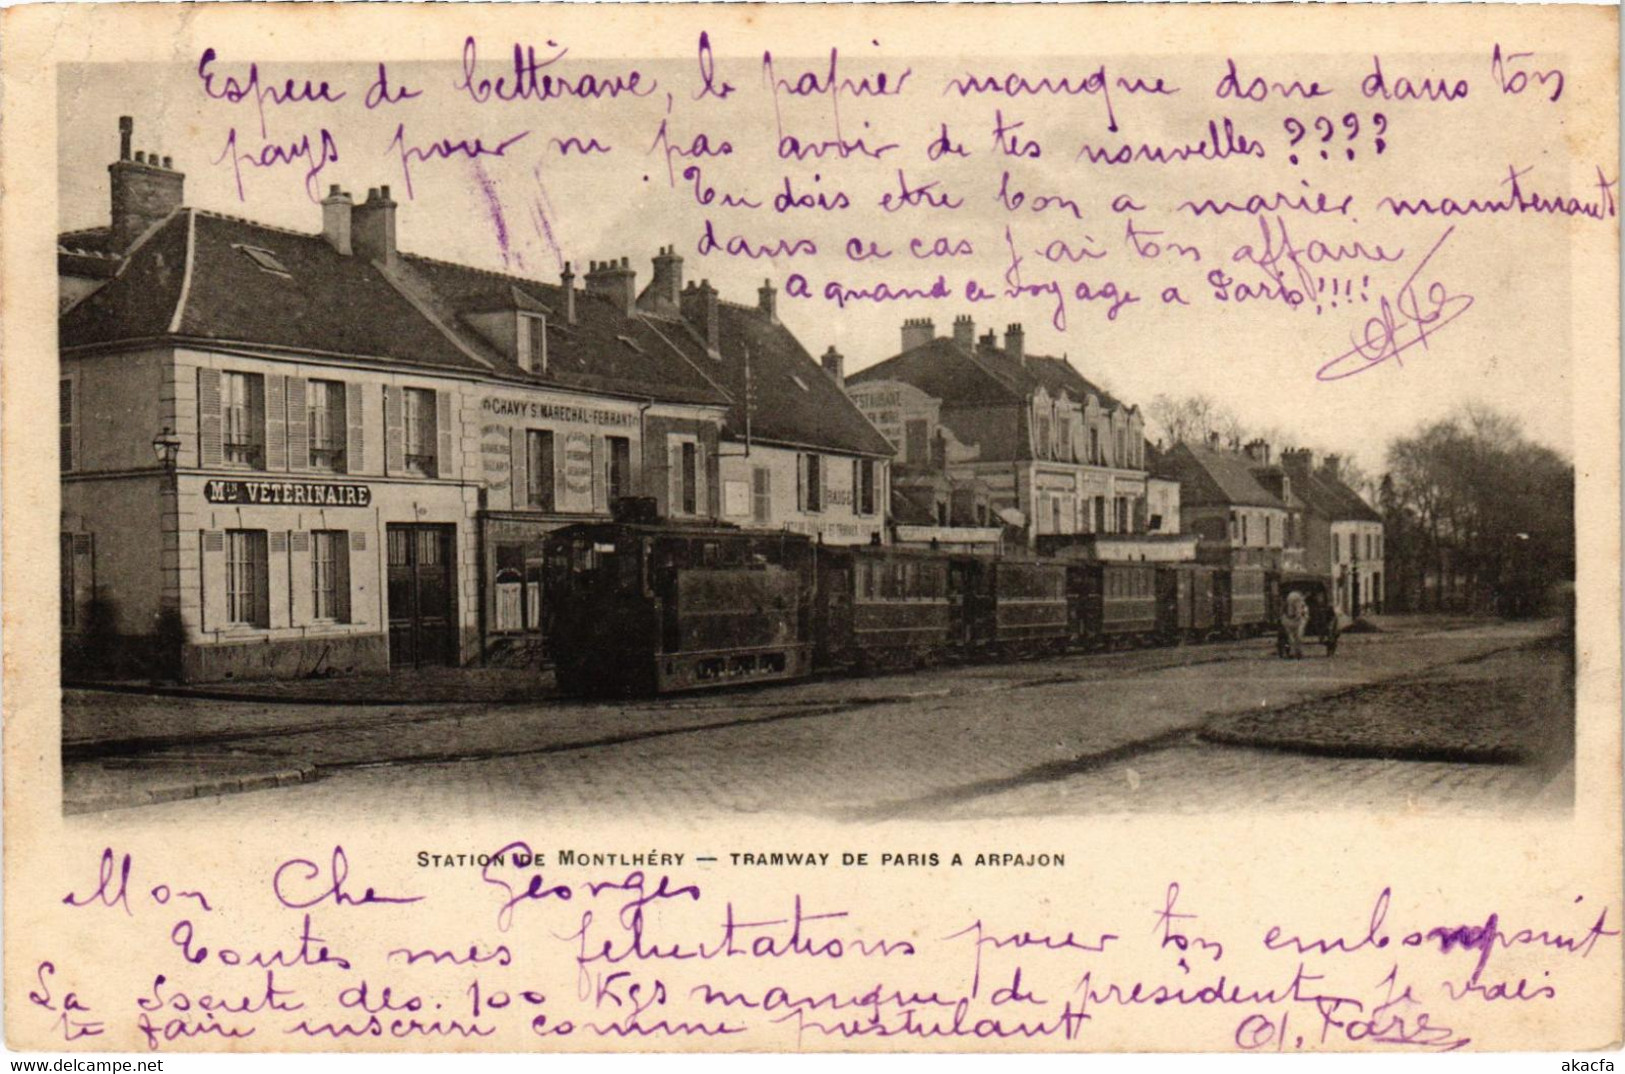 Espece de betterave, le papier manque donc dans ton
pays pour ne pas avoir de tes nouvelles ????
Tu dois etre bon a marier maintenant
dans ce cas j'ai ton affaire
a quand ce voyage a Paris !!!!
RESTAURANT
CHAVY S. MARECHAL-FERRANT
MON VÉTÉRINAIRE
STATION DE MONTLHÉRY — TRAMWAY DE PARIS A ARPAJON
Mon Cher Georges
Toutes mes felicitations pour ton embonpoint
La Societe des 100 Kgs manque de president Je vais
te faire inscrire comme postulant
akacfa